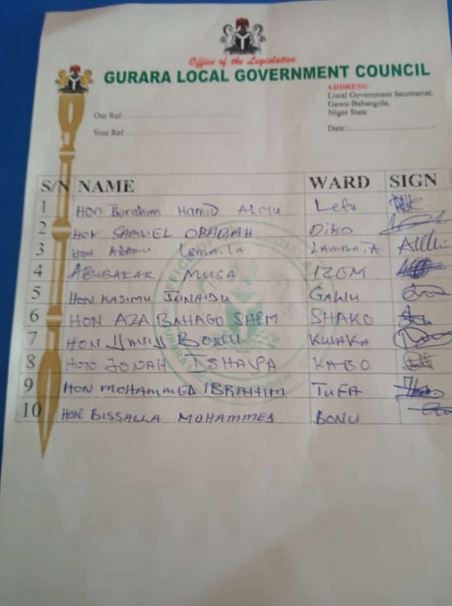 Office of the Legislative
GURARA LOCAL GOVERNMENT COUNCIL
ADDRESS:
Local Government Secretariat,
Gawu-Babangida,
Niger State
Our Ref:
Your Ref:
Date:
S/N NAME WARD SIGN
1 Hon Ibrahim Hamid Lefu
2 Hon SAMUEL OBADAH DIKO
3 HON ADAMU LAMBATA
4 ABUBAKAR MUSA IZOM
5 HON KASIMU JUNAIDU GAWU
6 HON AZA BAHAGO SHEM SHAKO
7 HON BONU KWAKA
8 HON JONAH ISHAYA KABO
9 HON MOHAMMED IBRAHIM TUFA
10 HON BISSALLA MOHAMMED BONU